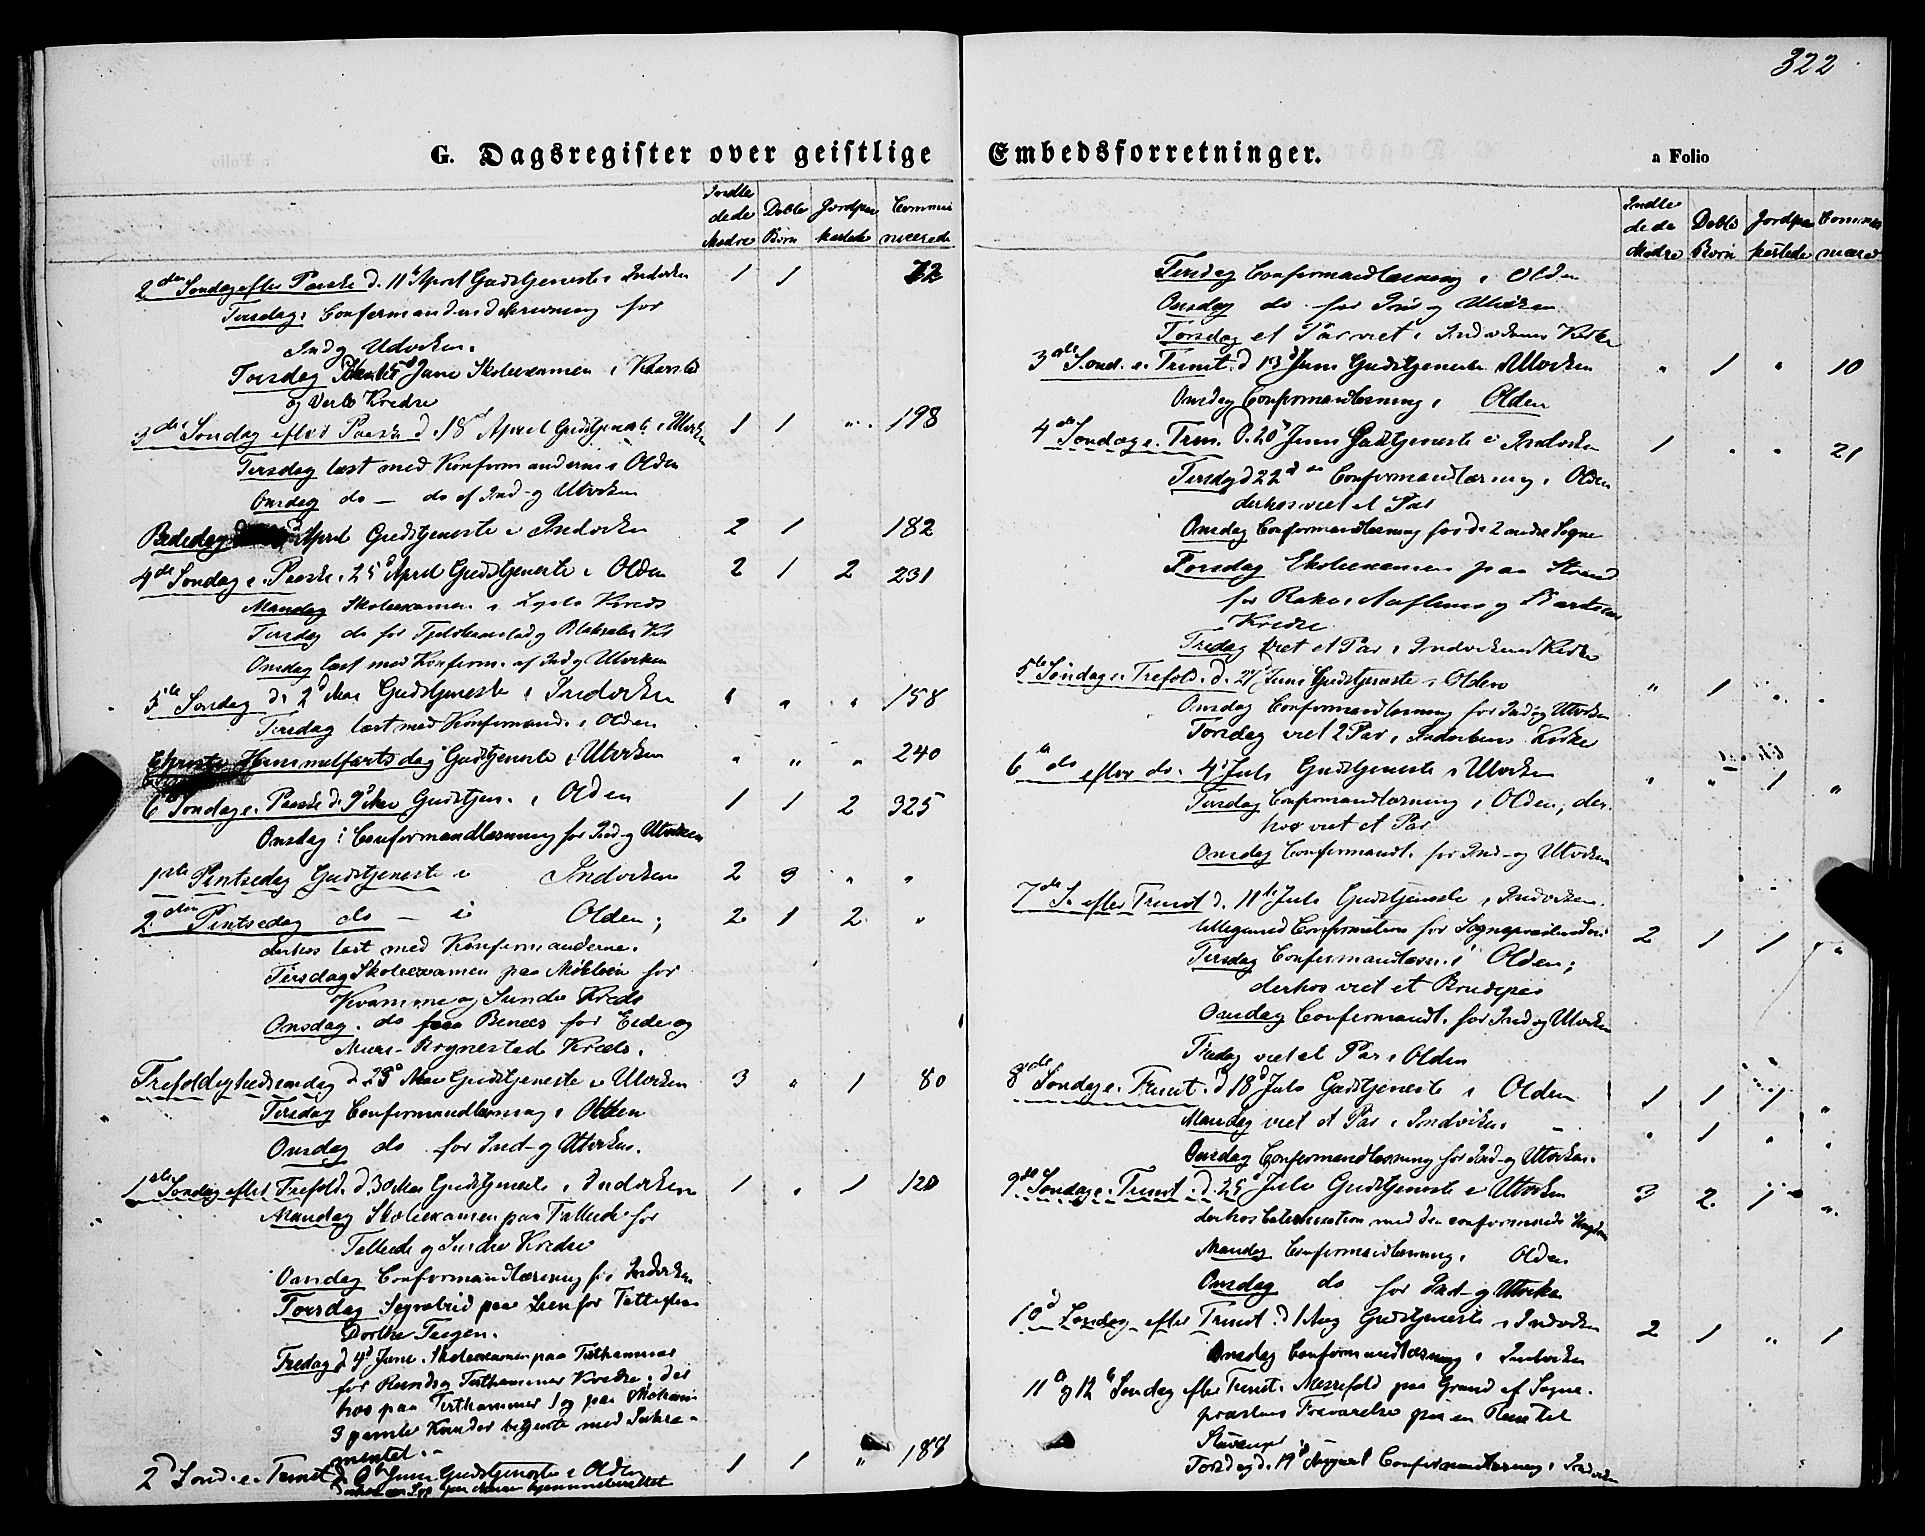 322
G. Dagsregister over geistlige
Embedsforretninger.
a Folio
Indle
dede
Mødre
Døbte
Børn
Jordpaa
kastede
Commu
nicerede
2den Søndag efter Paaske d. 11te April Gudstjeneste i Indviken 1 1 72
Tirsdag: Confirmandindskrivning for
Ind og Udviken.
Torsdag Skoleexamen i
og Kredse
3die Søndag efter Paaske d. 18de April Gudstjeneste i Utviken 1 1 " 198
Tirsdag læst med Konfirmanderne i Olden
Onsdag do – do af Ind- og Utviken
Bededag April Gudstjeneste i Indviken 2 1 182
4de Søndag e. Paaske. 25d April Gudstjeneste i Olden 2 1 2 231
Mandag Skoleexamen i Kreds
Tirsdag do for og
Onsdag læst med Konfirm. af Ind og Utviken
5te Søndag d. 2d Mai Gudstjeneste i Indviken " " " 158
Tirsdag læst med Konfirmand. i Olden
Christi Himmelfartsdag Gudstjeneste i Utviken " " " 240
6te Søndag e. Paaske d. 9d Mai Gudstjen. i Olden 1 1 2 325
Onsdag: Confirmandlæsning for Ind- og Utviken
1ste Pintsedag Gudstjeneste i Indviken 2 3 " "
2den Pintsedag do – i Olden; 2 1 2 "
derhos læst med Konfirmanderne.
Tirsdag Skoleexamen paa for
Kvamme og Sunde Kreds
Onsdag. do paa Benæs for Eide og
Muri- Rognestads Kreds.
Trefoldighedssøndag d 23d Mai Gudstjeneste i Utviken 3 " 1 80
Tirsdag Confirmandlæsning i Olden
Onsdag do for Ind- og Utviken.
1ste Søndag efter Trefold. d. 30 Mai Gudstjeneste i Indviken 1 " 1 120
Mandag Skoleexamen paa for
og Kredse
Onsdag Confirmandlæsning for Indviken
Torsdag Sognebud paa for
Dorthe Teigen.
Fredag d 4d Juni. Skoleexamen paa Tisthammer
for og Tisthammer Kredse; der
hos paa Tisthammer 1 og paa
3 gamle betjente med Sakra-
mentet.
2d Sønd. e. Trinit d. 6te Juni Gudstjeneste i Olden 1 1 " 188
Indle
dede
Mødre
Døbte
Børn
Jordpaa
kastede
Commu
nicered
Tirsdag Confirmandlæsning i Olden
Onsdag do. for Ind og Utviken
Torsdag et Par viet i Indvikens Kirke
3die Sønd. e. Trinit. d 13d Juni Gudstjeneste Utviken " 1 " 10
Onsdag Confirmandlæsning i Olden
4de Søndag e. Trin. d. 20d Juni Gudstjeneste i Indviken 1 " " 21
Tirsdag d 22d Confirmandlæsning i Olden
derhos viet et Par
Onsdag Confirmandlæsning for de 2 andre Sogne
Torsdag Skoleexamen paa Strand
for og
Kredse
Fredag viet et Par i Indvikens Kirke
5te Søndag e. Trefold. d. 27d Juni Gudstjeneste i Olden " 1 " "
Onsdag Confirmandlæsning for Ind og Utviken
Torsdag viet 2 Par i Indvikens Kirke
6te do efter do. 4d Juli Gudstjeneste i Utviken " " 1 "
Tirsdag Confirmandlæsning i Olden, der
hos viet et Par
Onsdag Confirmandl. for Ind- og Utviken
7de S. efter Trinit d. 11te Juli Gudstjeneste i Indviken
tilligemed Confirmation for 2 1 1 "
Tirsdag Confirmandlæsn. i Olden;
derhos viet et Brudepar
Onsdag Confirmandl. for Ind og Utviken
Fredag viet et Par i Olden
8de Søndag e. Trinit. d 18d Juli Gudstjeneste i Olden 1 1 1 "
Mandag viet et Par i Indviken " 1 " "
Onsdag Confirmandlæsning for Ind- og Utviken.
9de Søndag e. Trinit. d. 25d Juli Gudstjeneste i Utviken 3 2 1 "
derhos Catechisation med den confirmerede Ungdom
Mandag Confirmandlæsning i Olden
Onsdag do for Ind- og Utviken
10d Søndag efter Trinit. d 1 Aug Gudstjeneste i Indviken 2 1 " 1
Onsdag Confirmandlæsning i Indviken
11te og 12te Søndag efter Trinit. Messefald paa Grund af Sogne-
præstens Fraværelse paa en til
Stavanger
Torsdag d. 19d August Confirmandlæsning i Indviken